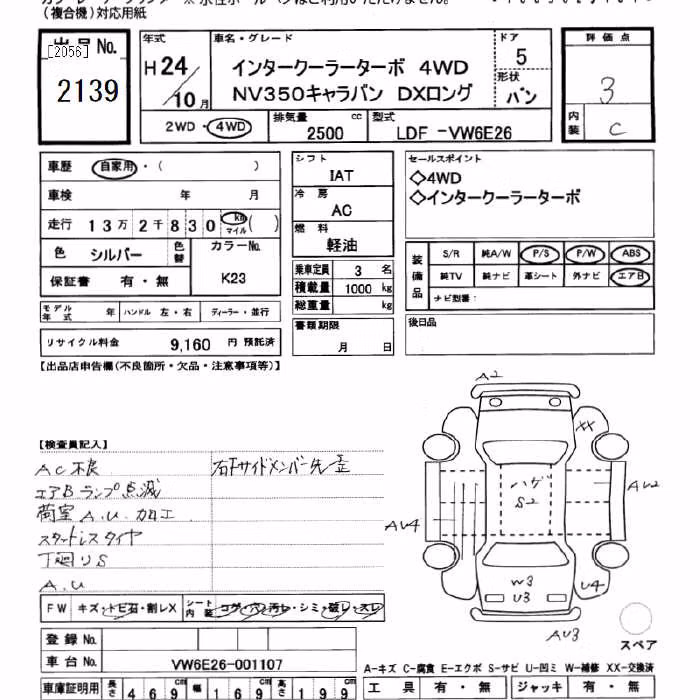 (複合機)対応用紙
出品 No.
[2056]
2139
年式
H24/10月
車名・グレード
インタークーラーターボ 4WD
NV350キャラバン DXロング
ドア
5
形状
バン
評価点
3
内装
C
2WD・4WD
排気量
2500 cc
型式
LDF -VW6E26
車歴 自家用・( )
車検 年 月
走行 13万2千830 km マイル ( )
色 シルバー 色替 カラーNo.
保証書 有・無 K23
シフト
IAT
冷房
AC
燃料
軽油
乗車定員 3 名
積載量 1000 kg
総重量 kg
セールスポイント
◇4WD
◇インタークーラーターボ
装備品
S/R 純A/W P/S P/W ABS
純TV 純ナビ 革シート 外ナビ エアB
ナビ型番:
モデル年式 年 ハンドル 左・右 ディーラー・並行
書類期限
月 日
後日品
リサイクル料金 9,160 円 預託済
【出品店申告欄(不良箇所・欠品・注意事項等)】
【検査員記入】
AC不良
エアBランプ点滅
荷室 A.U. 加工
スタートレスタイヤ
下廻りS
A.U
右Fサイドメンバー先歪
A2
XX
ハゲ
S2
AU2
AU4
W3
U3
U4
AU3
スペア
FW キズ・トビ石・割レX シート内装 コゲ・穴・汚レ・シミ・破レ・スレ
登録 No.
車台 No. VW6E26-001107
車庫証明用 長さ 469 cm 幅 169 cm 高さ 199 cm
A-キズ C-腐食 E-エクボ S-サビ U-凹ミ W-補修 XX-交換済
工具 有・無 ジャッキ 有・無